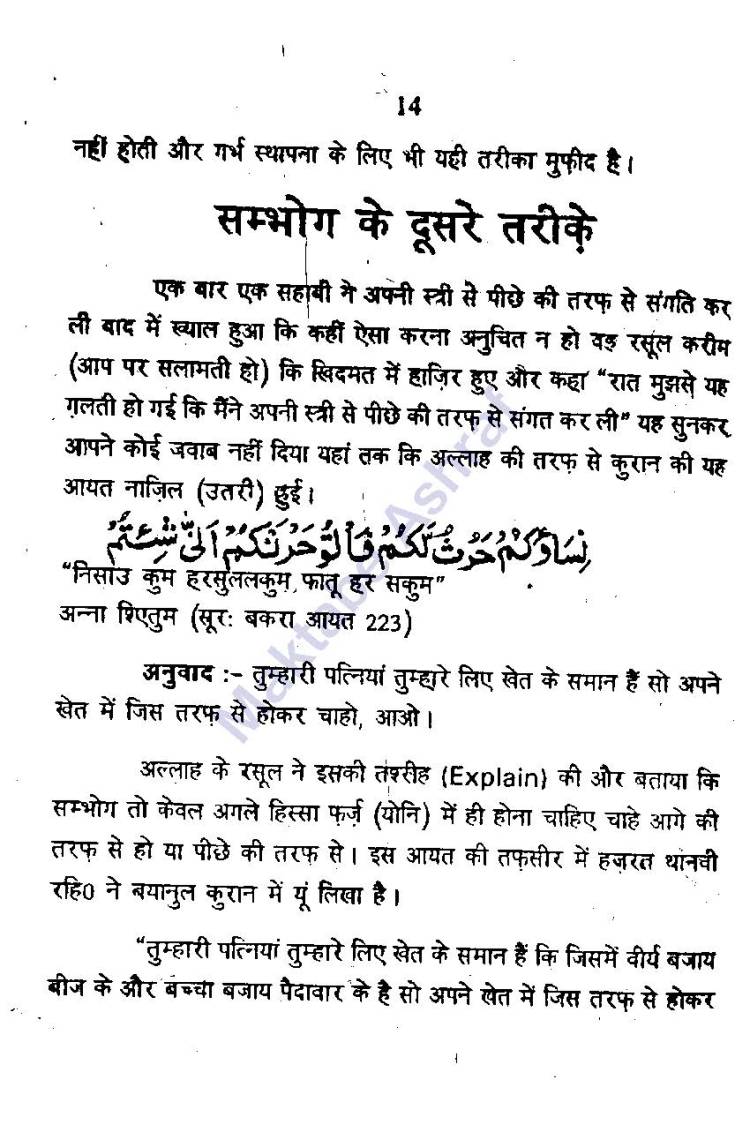 14
नहीं होती और गर्भ स्थापना के लिए भी यही तरीका मुफ़ीद है।
सम्भोग के दूसरे तरीक़े
एक बार एक सहाबी ने अपनी स्त्री से पीछे की तरफ से संगति कर
ली बाद में ख्याल हुआ कि कहीं ऐसा करना अनुचित न हो वह रसूल करीम
(आप पर सलामती हो) कि खिदमत में हाज़िर हुए और कहा “रात मुझसे यह
ग़लती हो गई कि मैंने अपनी स्त्री से पीछे की तरफ़ से संगत कर ली” यह सुनकर
आपने कोई जवाब नहीं दिया यहां तक कि अल्लाह की तरफ़ से कुरान की यह
आयत नाज़िल (उतरी) हुई।
نِسَاؤُكُمْ حَرْثٌ لَّكُمْ فَاْتُوْا حَرْثَكُمْ اَنّٰى شِئْتُمْ
“निसाउ कुम हरसुललकुम, फातू हर सकुम”
अन्ना श्िएतुम (सूरः बकरा आयत 223)
अनुवाद :- तुम्हारी पत्नियां तुम्हारे लिए खेत के समान हैं सो अपने
खेत में जिस तरफ़ से होकर चाहो, आओ।
अल्लाह के रसूल ने इसकी तशरीह (Explain) की और बताया कि
सम्भोग तो केवल अगले हिस्सा फ़र्ज़ (योनि) में ही होना चाहिए चाहे आगे की
तरफ़ से हो या पीछे की तरफ़ से। इस आयत की तफ़सीर में हज़रत थानवी
रहि0 ने बयानुल कुरान में यूं लिखा है।
“तुम्हारी पत्नियां तुम्हारे लिए खेत के समान हैं कि जिसमें वीर्य बजाय
बीज के और बच्चा बजाय पैदावार के है सो अपने खेत में जिस तरफ़ से होकर
Maktab e Ashraf